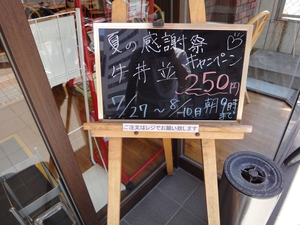 夏の感謝祭
キャンペーン
牛丼並
250円
7/27〜8/10日朝9時まで
ご注文はレジでお願い致します